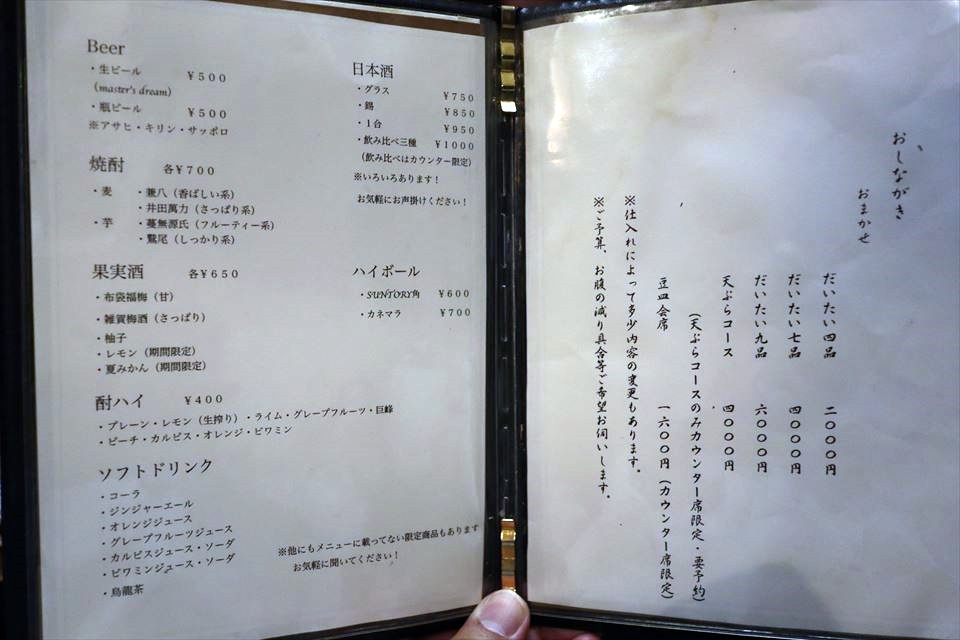 Beer
・生ビール ￥500
（master's dream）
・瓶ビール ￥500
※アサヒ・キリン・サッポロ
焼酎 各￥700
・麦 ・兼八（香ばしい系）
・井田萬力（さっぱり系）
・芋 ・蔓無源氏（フルーティー系）
・鷲尾（しっかり系）
果実酒 各￥650
・布袋福梅（甘）
・雑賀梅酒（さっぱり）
・柚子
・レモン（期間限定）
・夏みかん（期間限定）
酎ハイ ￥400
・プレーン・レモン（生搾り）・ライム・グレープフルーツ・巨峰
・ピーチ・カルピス・オレンジ・ビワミン
ソフトドリンク
・コーラ
・ジンジャーエール
・オレンジジュース
・グレープフルーツジュース
・カルピスジュース・ソーダ
・ビワミンジュース・ソーダ
・烏龍茶
日本酒
・グラス ￥750
・錫 ￥850
・1合 ￥950
・飲み比べ三種 ￥1000
（飲み比べはカウンター限定）
※いろいろあります！
お気軽にお声掛けください！
ハイボール
・SUNTORY角 ￥600
・カネマラ ￥700
※他にもメニューに載ってない限定商品もあります
お気軽に聞いてください！
おしながき
おまかせ
だいたい四品 二〇〇〇円
だいたい七品 四〇〇〇円
だいたい九品 六〇〇〇円
天ぷらコース 四〇〇〇円
（天ぷらコースのみカウンター席限定・要予約）
豆皿会席 一六〇〇円（カウンター席限定）
※仕入れによって多少内容の変更もあります。
※ご予算、お腹の減り具合等ご希望お伺いします。